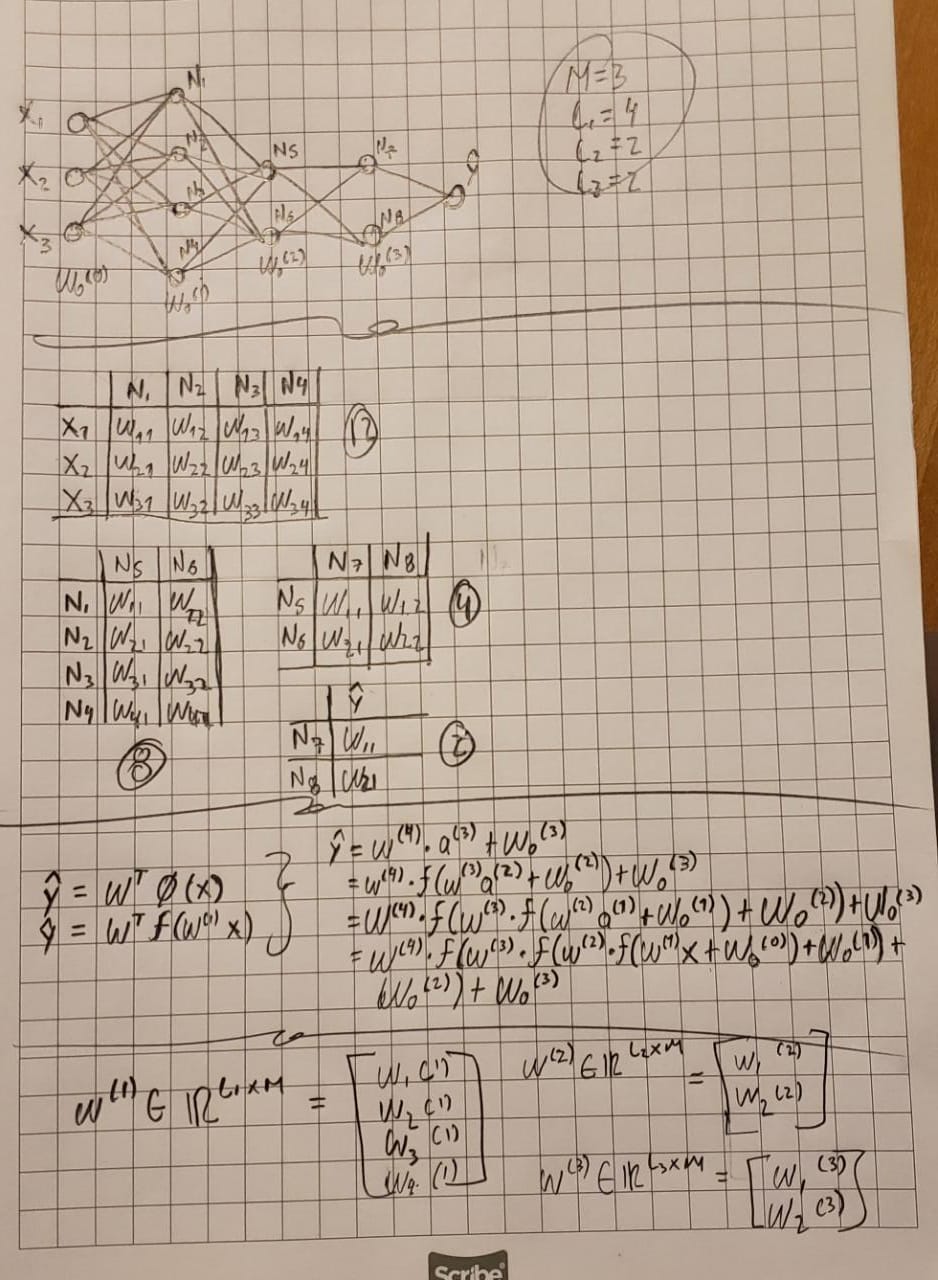 M=3
L₁=4
L₂=2
L₃=2
N₁
X₁
N₂
N₅
N₇
ŷ
X₂
N₃
X₃
N₄
N₆
N₈
W₀⁽⁰⁾
W₀⁽¹⁾
W₀⁽²⁾
W₀⁽³⁾
N₁ N₂ N₃ N₄
X₁ W₁₁ W₁₂ W₁₃ W₁₄ 12
X₂ W₂₁ W₂₂ W₂₃ W₂₄
X₃ W₃₁ W₃₂ W₃₃ W₃₄
N₅ N₆
N₁ W₁₁ W₂₂
N₂ W₂₁ W₂₂
N₃ W₃₁ W₃₂
N₄ W₄₁
8
N₇ N₈
N₅ W₁₁ W₁₂ 4
N₆ W₂₁ W₂₂
ŷ
N₇ W₁₁ 2
N₈ W₂₁
ŷ = Wᵀ Ø(x)
ŷ = Wᵀ f(W⁽¹⁾ x)
ŷ = W⁽⁴⁾·a⁽³⁾ + W₀⁽³⁾
= W⁽⁴⁾·f(W⁽³⁾a⁽²⁾ + W₀⁽²⁾) + W₀⁽³⁾
= W⁽⁴⁾·f(W⁽³⁾·f(W⁽²⁾a⁽¹⁾ + W₀⁽¹⁾) + W₀⁽²⁾) + W₀⁽³⁾
= W⁽⁴⁾·f(W⁽³⁾·f(W⁽²⁾·f(W⁽¹⁾x + W₀⁽⁰⁾) + W₀⁽¹⁾) +
W₀⁽²⁾) + W₀⁽³⁾
W⁽¹⁾ ∈ ℝ^(L₁×M) = [W₁⁽¹⁾
W₂⁽¹⁾
W₃⁽¹⁾
W₄⁽¹⁾]
W⁽²⁾ ∈ ℝ^(L₂×M) = [W₁⁽²⁾
W₂⁽²⁾]
W⁽³⁾ ∈ ℝ^(L₃×M) = [W₁⁽³⁾
W₂⁽³⁾]
Scribe